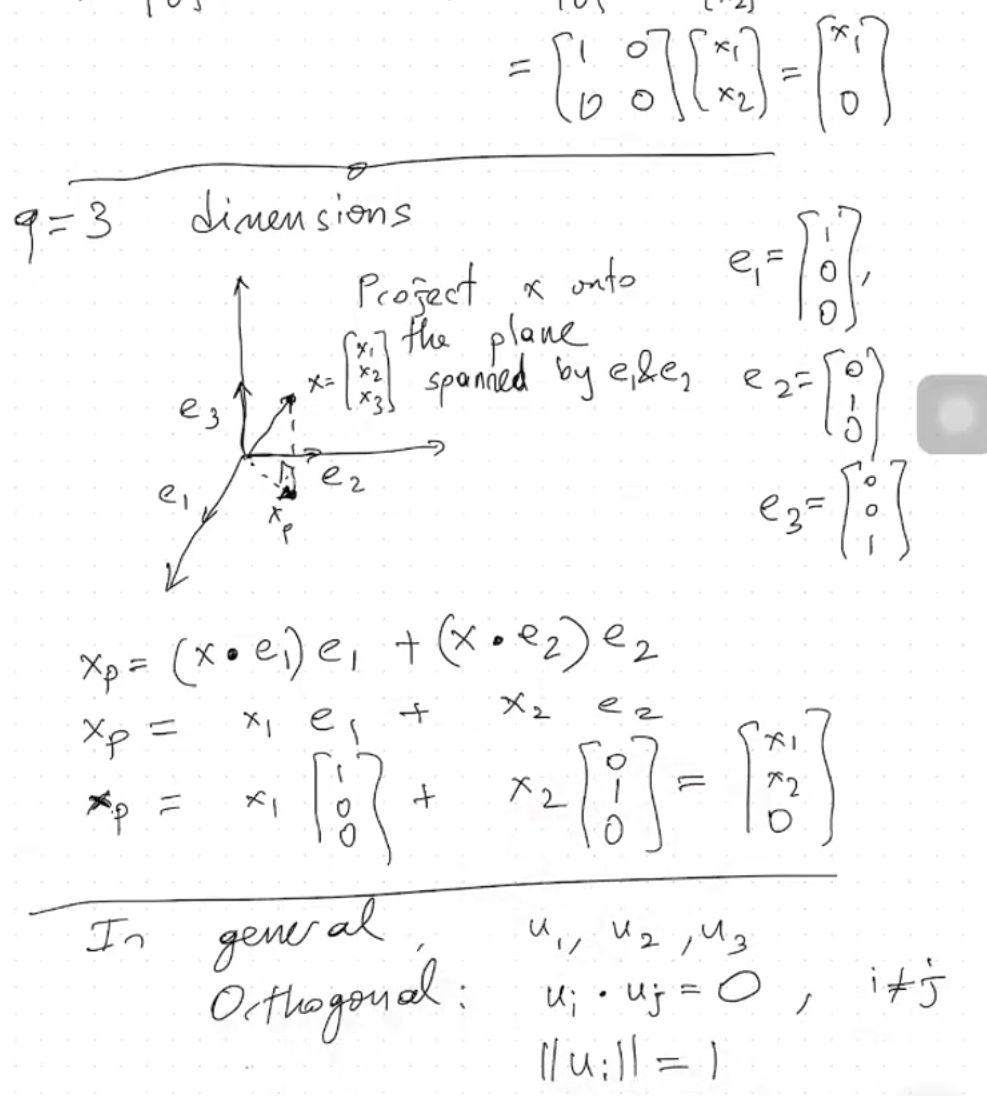 = [1 0; 0 0] [x₁; x₂] = [x₁; 0]
q=3 dimensions
Project x onto
the plane
spanned by e₁&e₂
x= [x₁; x₂; x₃]
e₃
e₂
e₁
xₚ
e₁= [1; 0; 0],
e₂= [0; 1; 0]
e₃= [0; 0; 1]
xₚ = (x • e₁) e₁ + (x • e₂) e₂
xₚ = x₁ e₁ + x₂ e₂
xₚ = x₁ [1; 0; 0] + x₂ [0; 1; 0] = [x₁; x₂; 0]
In general, u₁, u₂, u₃
Orthogonal: uᵢ • uⱼ = 0, i≠j
||uᵢ|| = 1